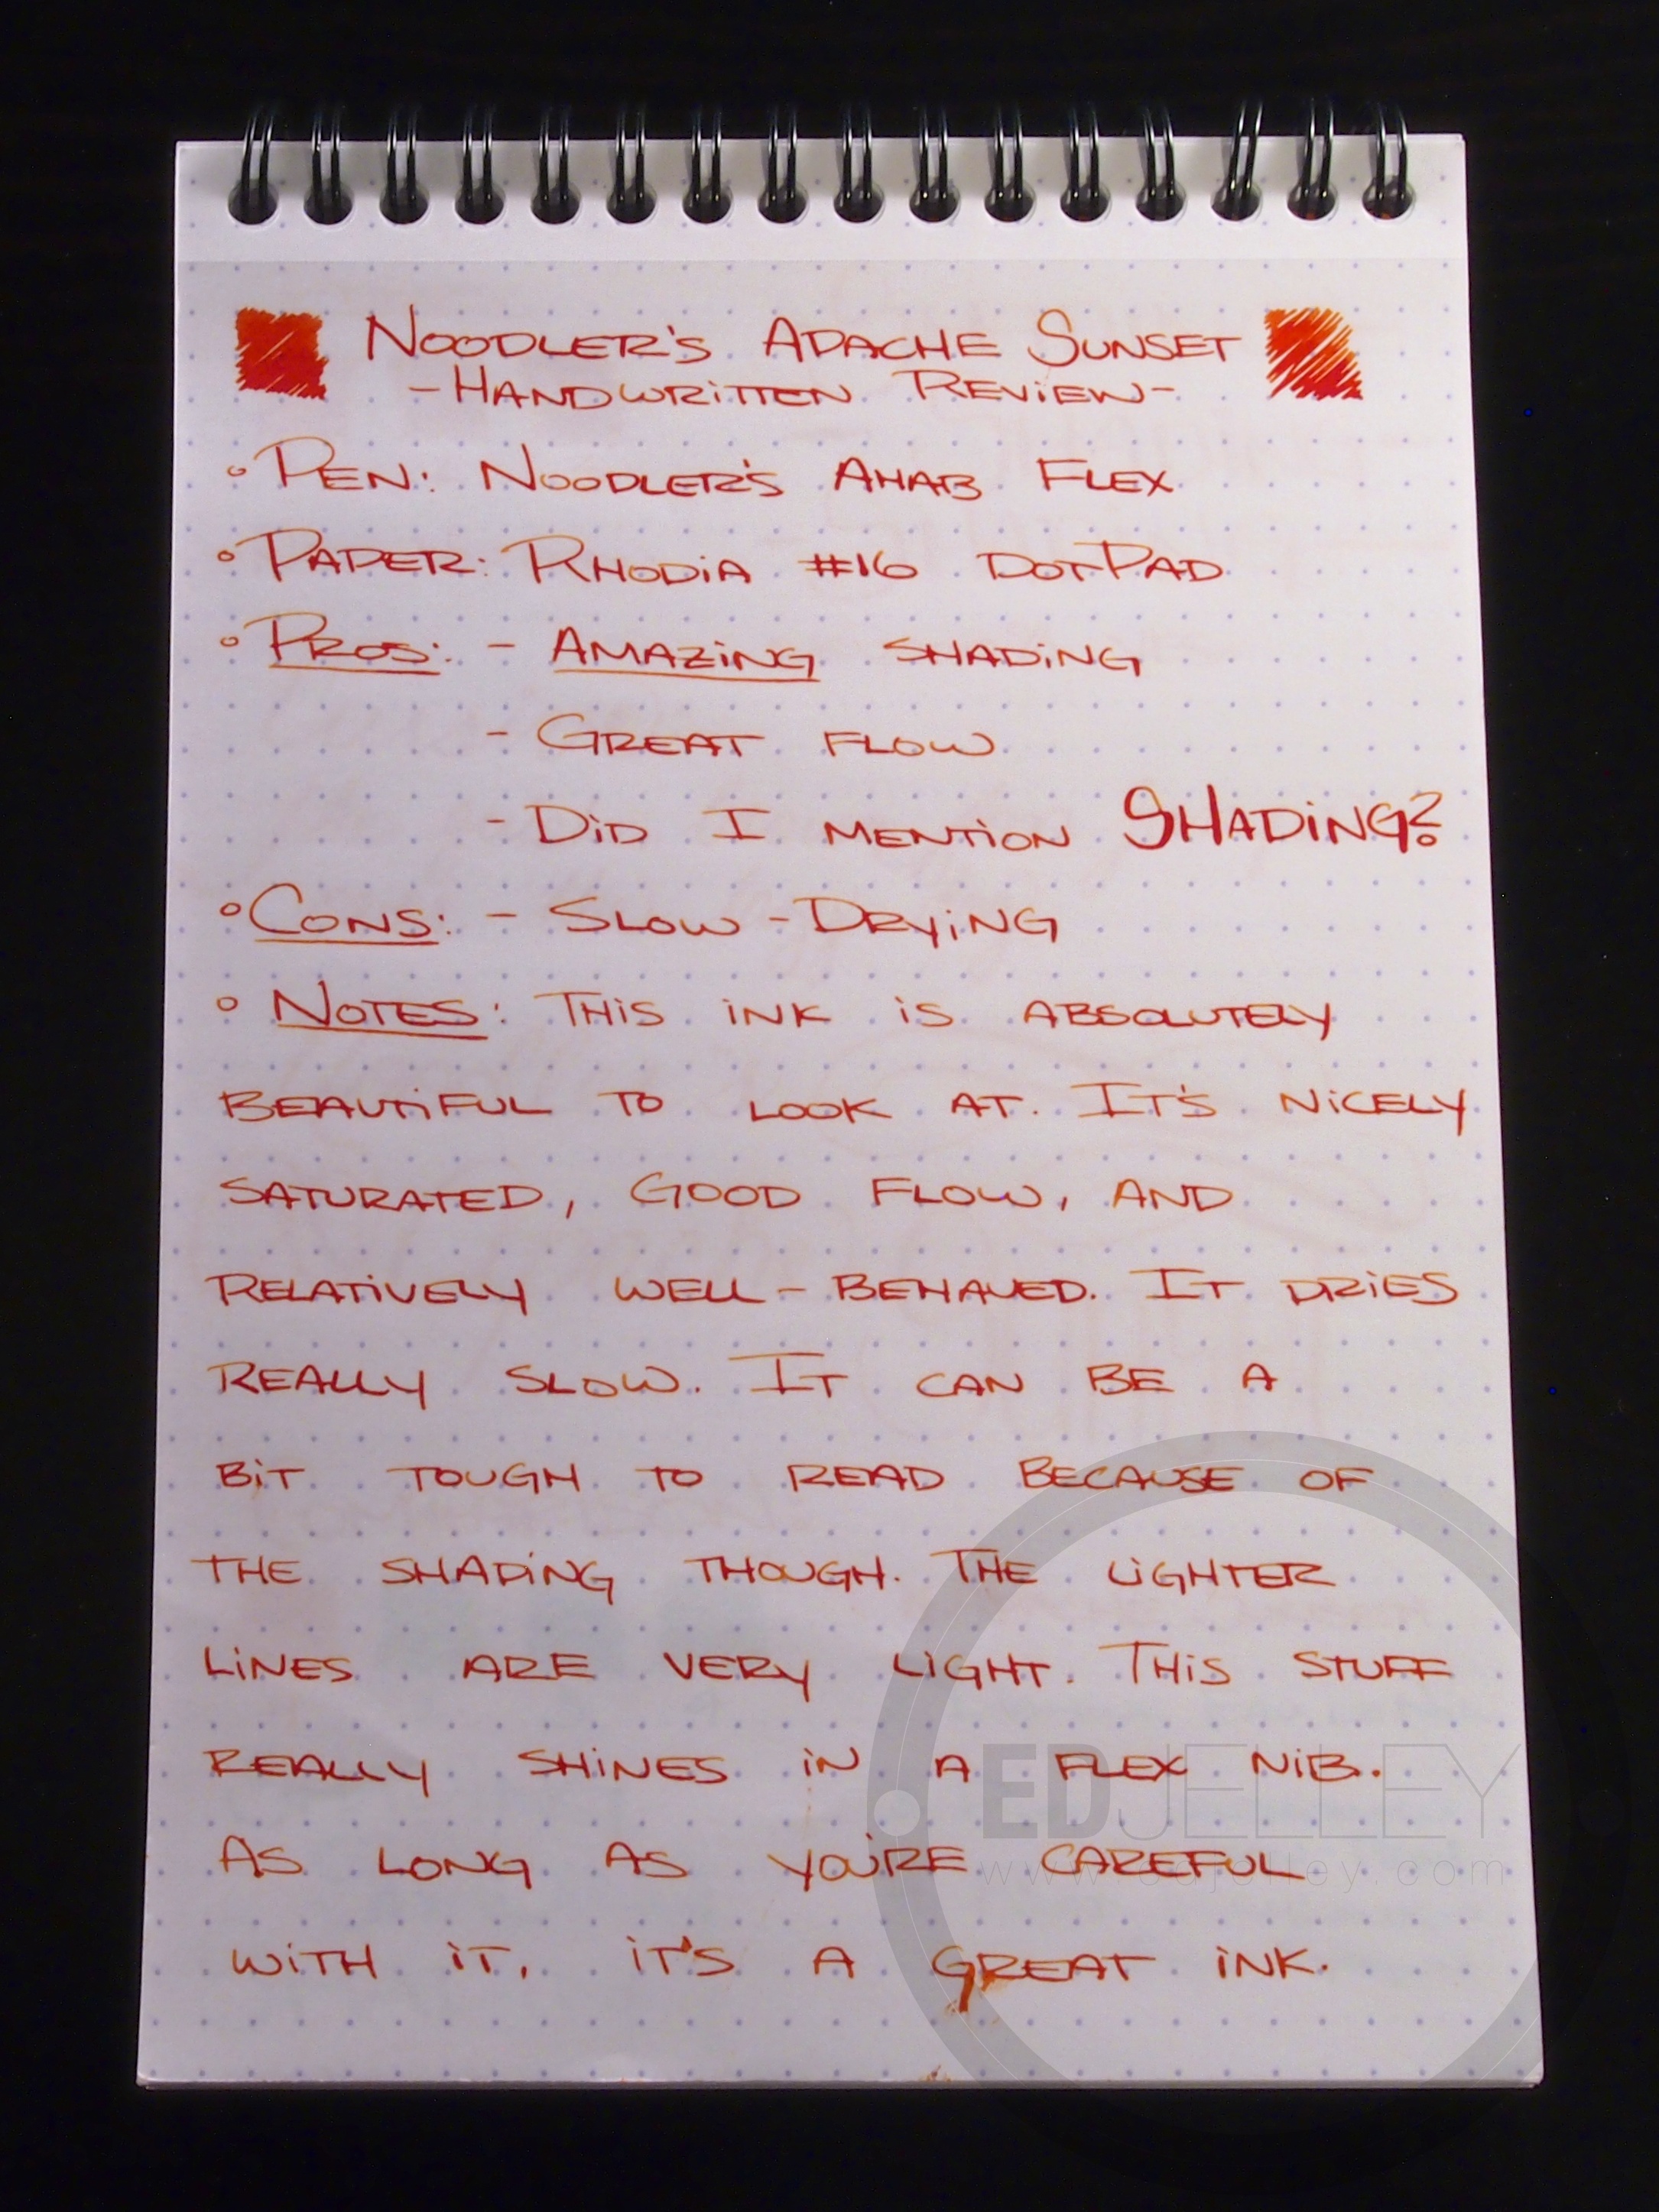 Noodler's Apache Sunset
- Handwritten Review -
° Pen: Noodler's Ahab Flex
° Paper: Rhodia #16 DotPad
° Pros: - Amazing shading
- Great flow
- Did I mention SHADING?
° Cons: - Slow-Drying
° Notes: This ink is absolutely
beautiful to look at. It's nicely
saturated, good flow, and
relatively well-behaved. It dries
really slow. It can be a
bit tough to read because of
the shading though. The lighter
lines are very light. This stuff
really shines in a flex nib.
EDJELLEY
As long as you're careful
www.edjelley.com
with it, it's a great ink.